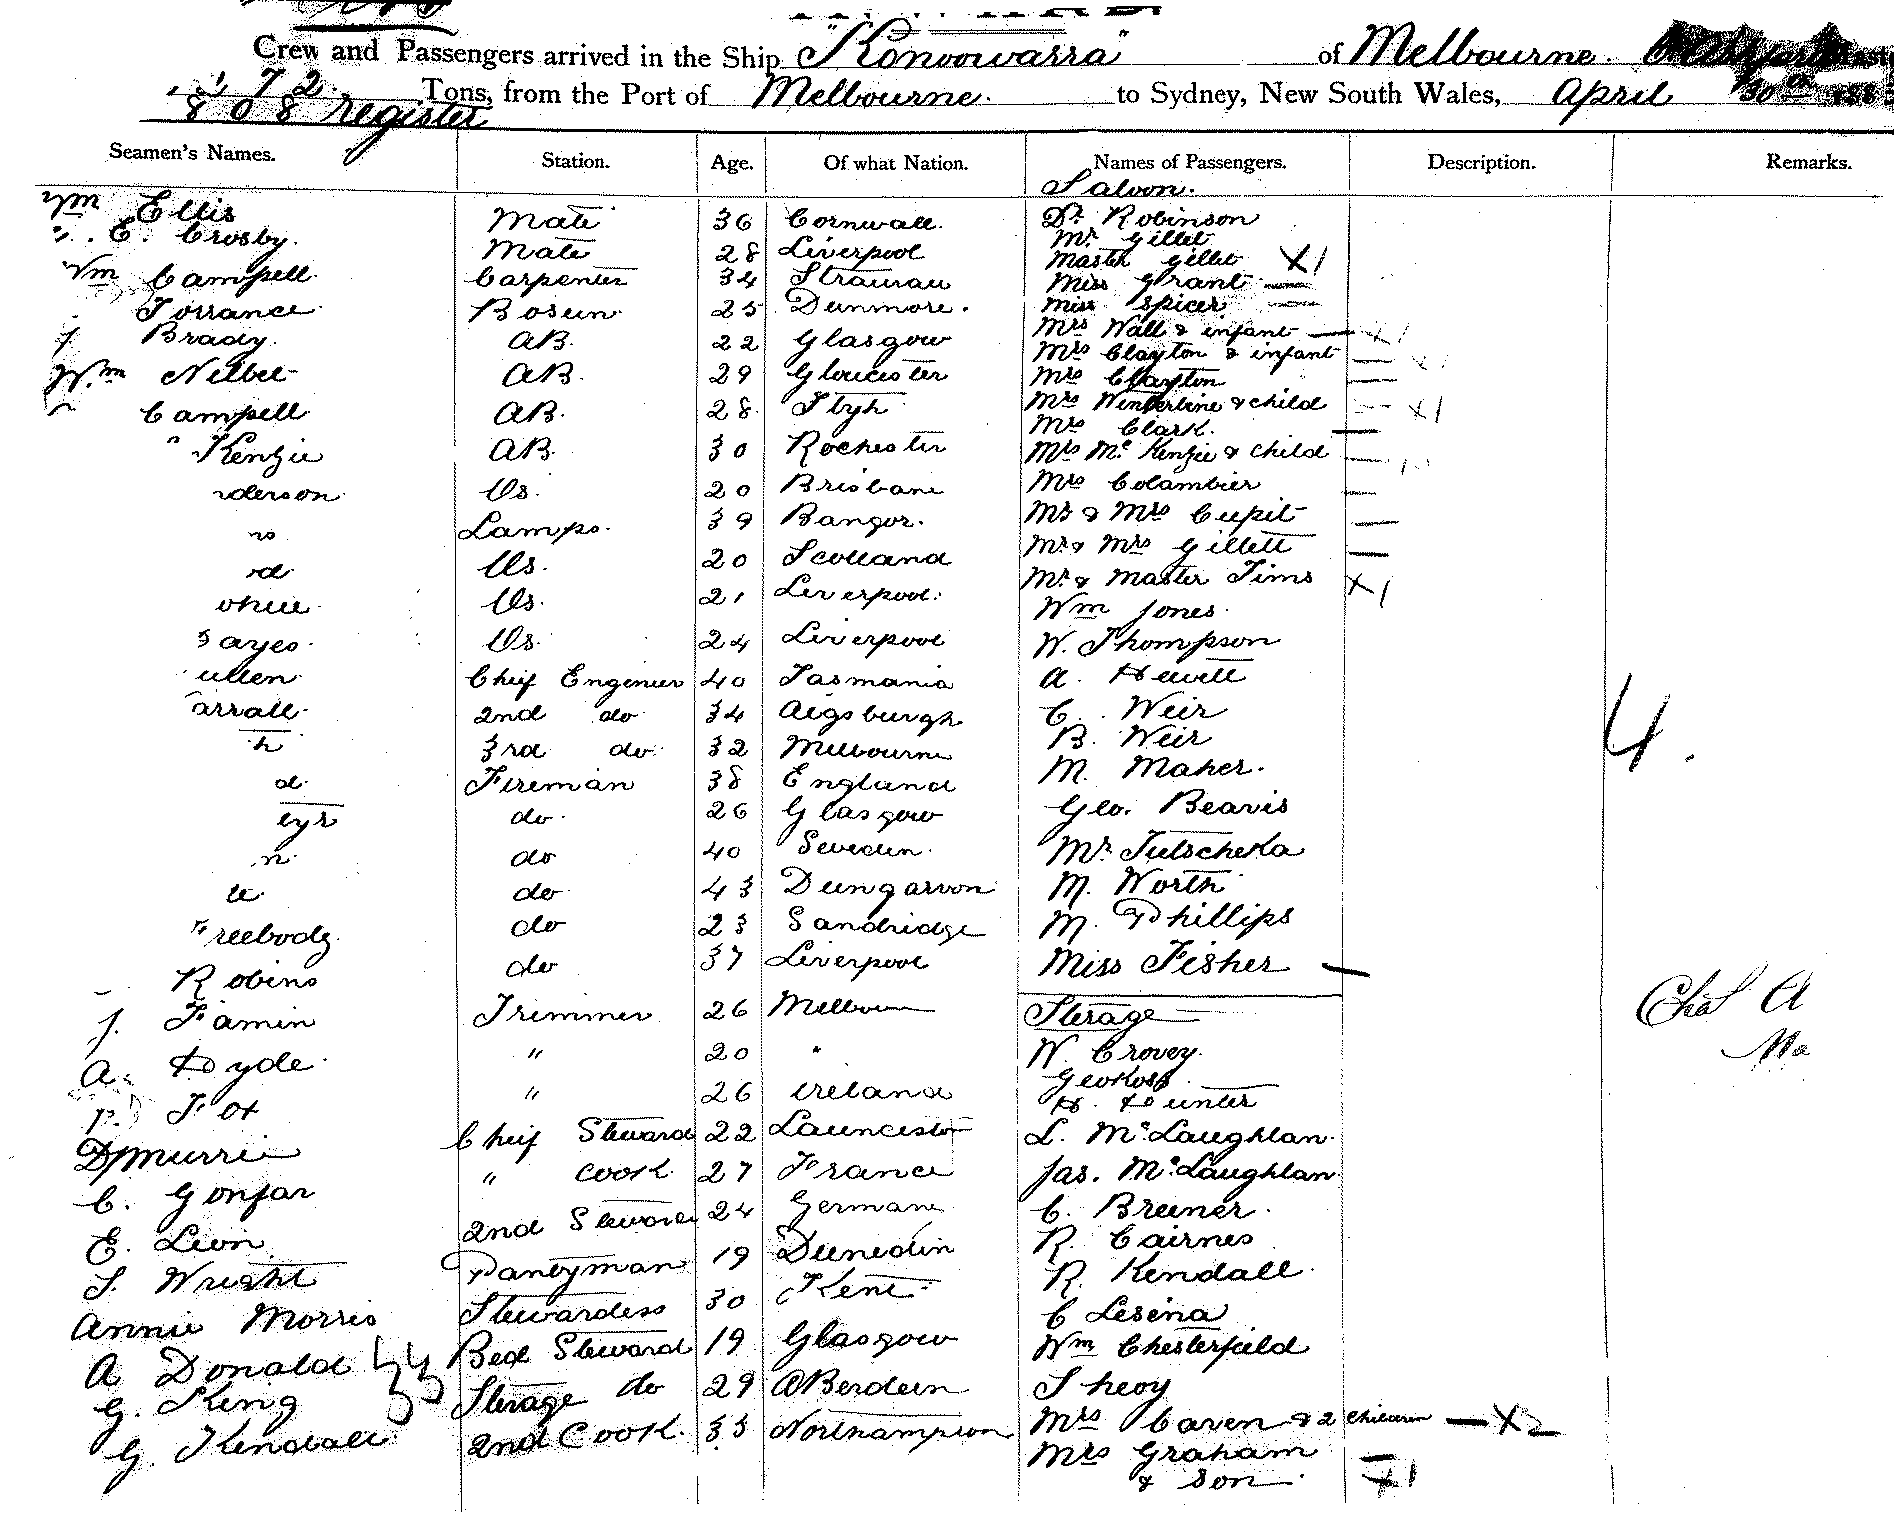 Crew and Passengers arrived in the Ship "Konoowarra" of Melbourne.
1272
808 Register Tons, from the Port of Melbourne. to Sydney, New South Wales, April 30th 188
Seamen's Names. Station. Age. Of what Nation. Names of Passengers. Description. Remarks.
Saloon.
Wm Ellis Mate 36 Cornwall. Dr. Robinson
" E. Crosby. Mate 28 Liverpool Mr Gillet
Master Gillet X1
Wm Campell Carpenter 34 Miss Grant —
Torrance Bosun 25 Dunmore. Miss Spicer —
J. Brady. AB. 22 Glasgow Mrs Wall & infant — X1
Mrs Clayton & infant — X1
Wm Nilbet AB. 29 Gloucester Mrs Clayton —
Campell AB. 28 Mrs & child — X1
Mrs Clark. —
" Kenzie AB. 30 Rochester Mrs McKenzie & child —
derson Os. 20 Brisbane Mrs Colambier —
Lamps. 39 Bangor. Mr & Mrs Cupit —
Os. 20 Scotland Mr & Mrs Gillett —
Os. 21 Liverpool. Mr & Master Tims X1
Wm Jones.
ayes. Os. 24 Liverpool W. Thompson
ullen Cheif Engenier 40 Tasmania A. Hewitt
arrall 2nd do 34 Aigsburgh C. Weir
h 3rd do. 32 Melbourne B. Weir
d Fireman 38 England M. Maher.
eyr do. 26 Glasgow Geo. Beavis
n. do 40 Sweden. Mr. Tutscheka
te do 43 Dungarvon M. Worth
Freebody. do 23 Sandridge M. Phillips
Robins do 37 Liverpool Miss Fisher —
4.
J. Famin Trimmer 26 Melbourn Sterage
A. Hyde " 20 " W. Crovey.
Geo Ross
P. Fox " 26 ireland H. Hunter
D Murrie Cheif Steward 22 Launceston L. McLaughlan.
C. Gonfar " cook 27 France Jas. McLaughlan
E. Lion 2nd Steward 24 German C. Breener.
R. Cairnes
T. Wright Pantyman 19 Dunedin R. Kendall.
Annie Morris Stewardess 30 Kent C Lesina
A Donald Bed Steward 19 Glasgow Wm Chesterfield
G. King Sterage do 29 ABerdeen
G. Kendall 2nd Cook. 33 Northampton Mrs Caven & 2 Children — X2
Mrs Graham —
& Son. X1
Chas A
Ma